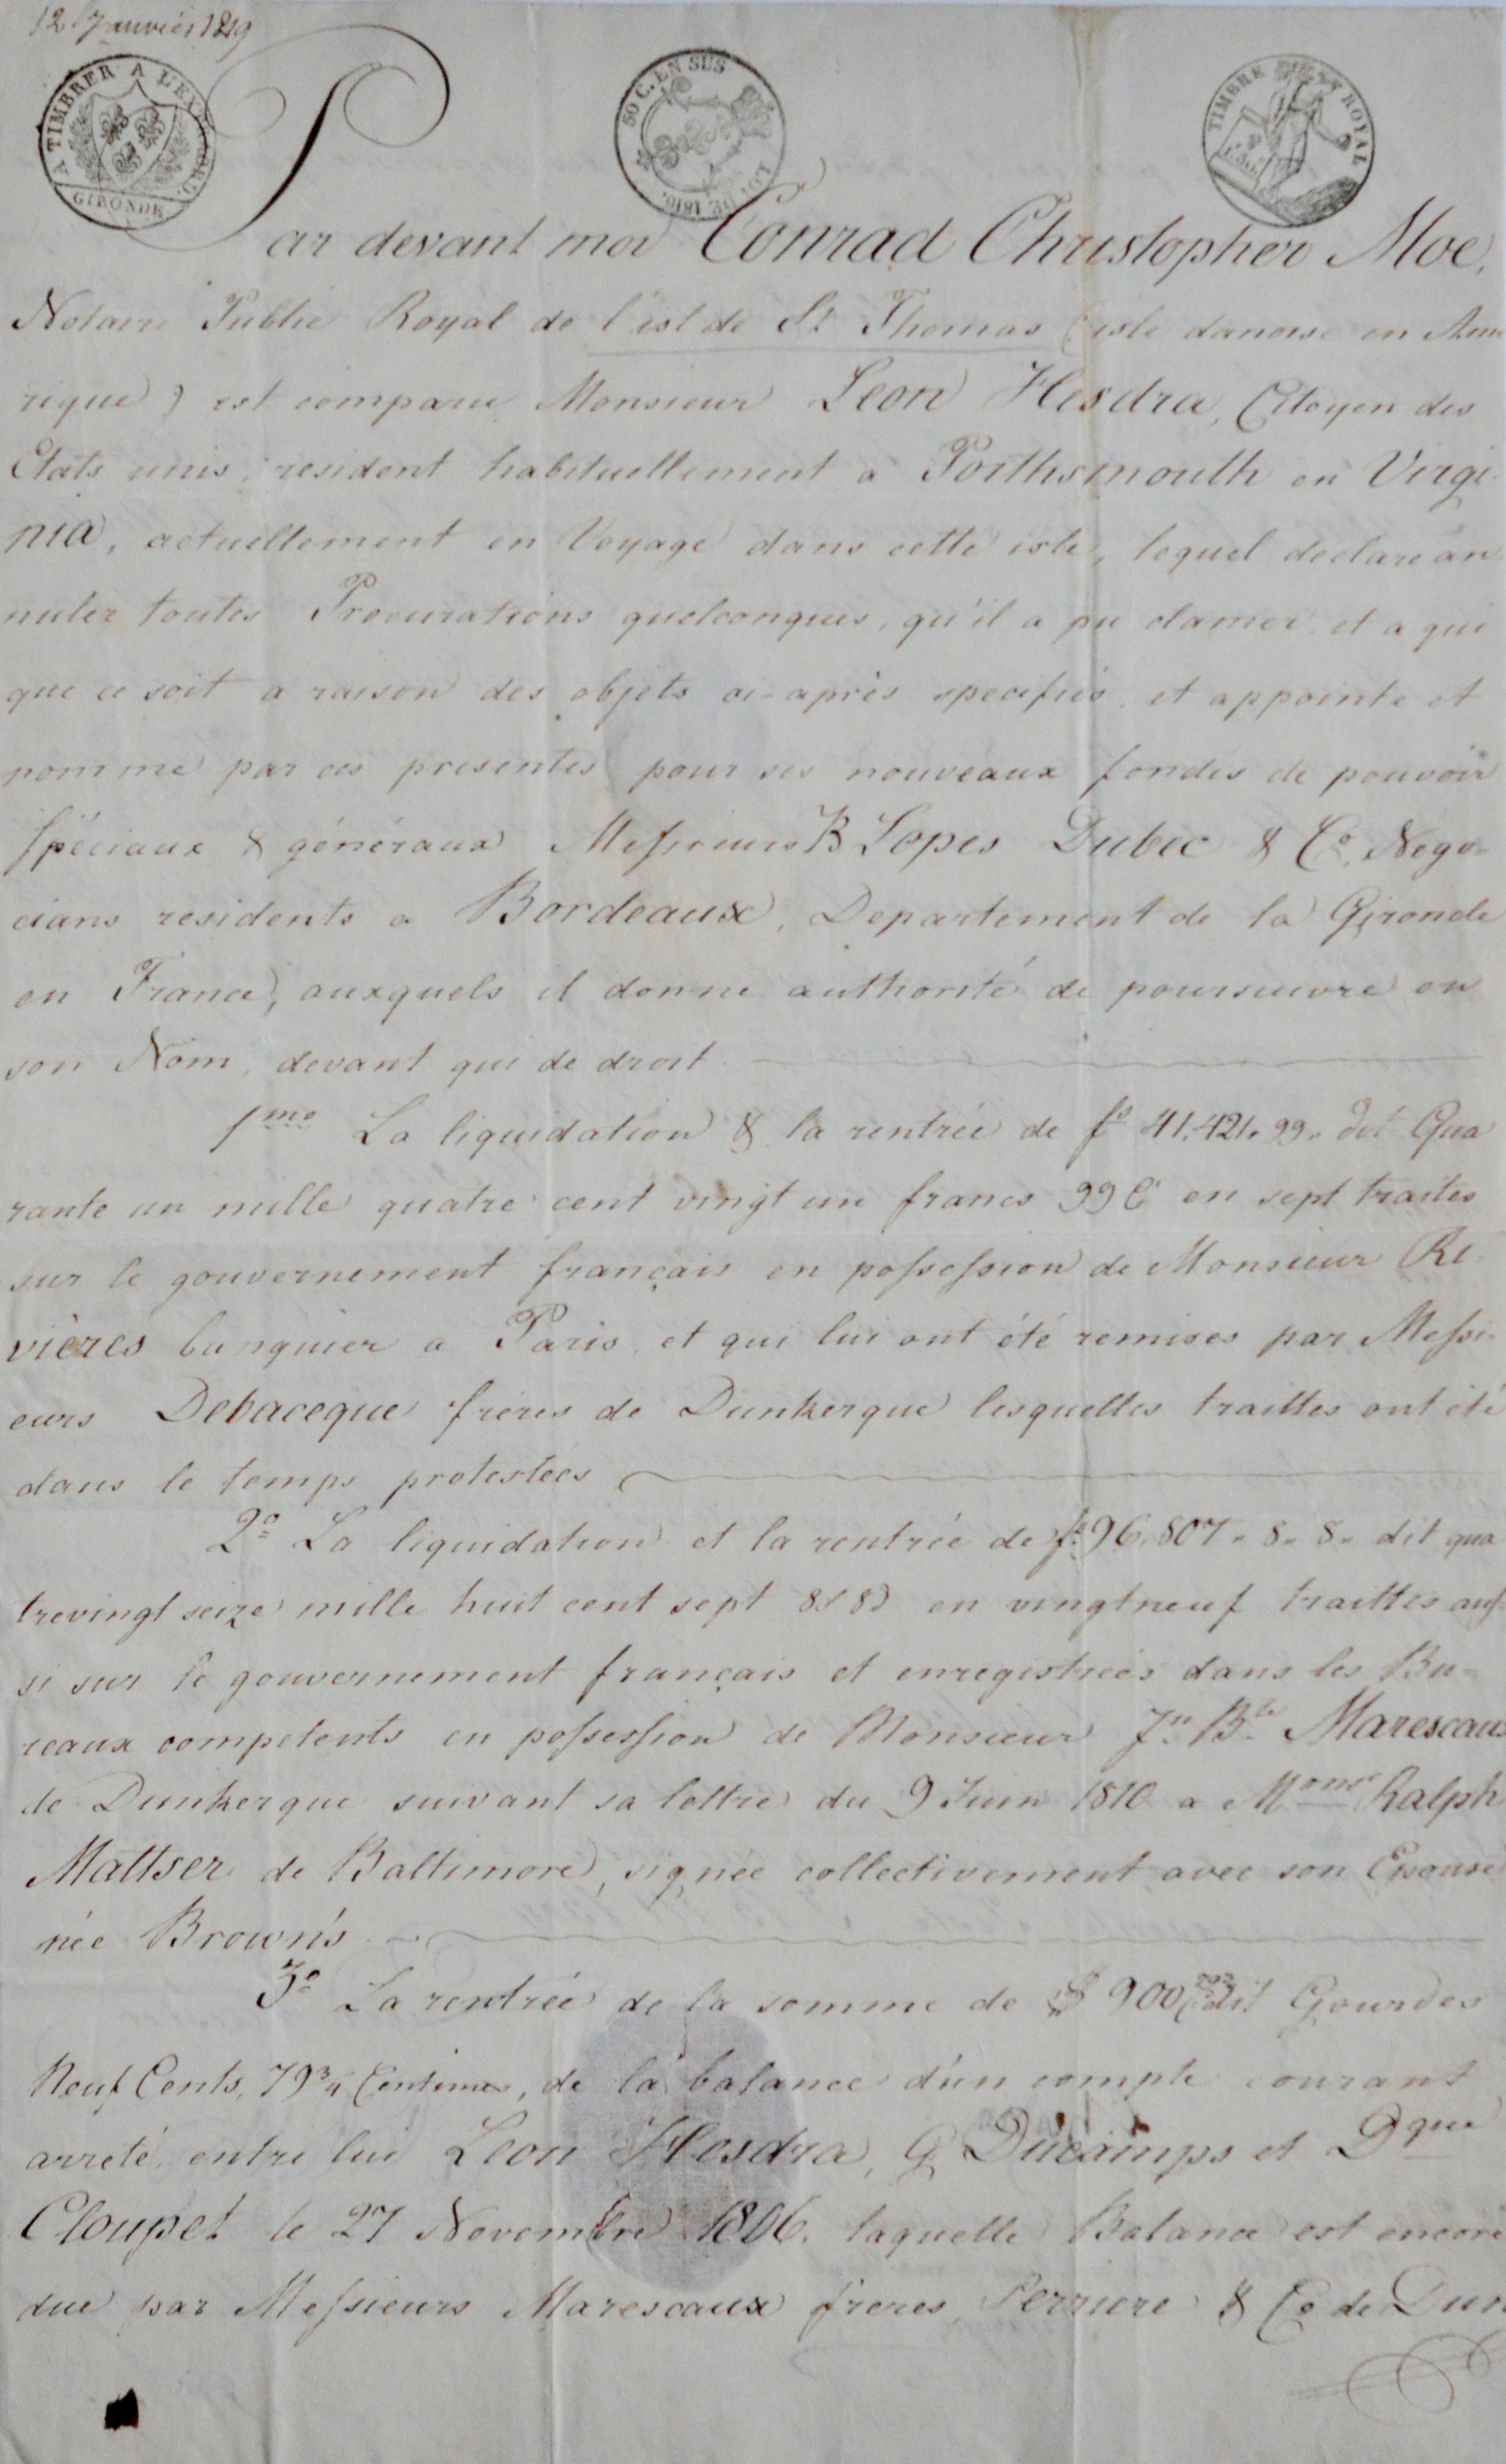 12 Janvier 1819
A TIMBRER A L'EXTRAORD.
GIRONDE
50 C. EN SUS
LOI DE 1816.
TIMBRE ROYAL
Par devant moi Conrad Christopher Moe,
Notaire Public Royal de l'isl de St Thomas (isle danoise en Ame
rique) est comparu Monsieur Leon Hesdra, Citoyen des
Etats unis, resident habituellement a Porthsmouth en Virgi
nia, actuellement en Voyage dans cette isle, lequel declare an
nuler toutes Procurations quelconques, qu'il a pu donner et a qui
que ce soit a raison des objets ci-après specifiés, et appointe et
nomme par ces presentes pour ses nouveaux fondés de pouvoir
spéciaux & généraux Messieurs B Lopes Dubec & Co. Nego-
cians residents a Bordeaux, Departement de la Gironde
en France, auxquels il donne authorité de poursuivre en
son Nom, devant qui de droit
1mo La liquidation & la rentrée de fs 41,421.99. dit Qua
rante un mille quatre cent vingt un francs 99 C en sept traites
sur le gouvernement français en possession de Monsieur Ri
vières banquier a Paris, et qui lui ont été remises par Messi-
eurs Debaceque frères de Dunkerque lesquelles traittes ont été
dans le temps protestées
2o La liquidation et la rentrée de fs 96,807. 8. 8. dit qua
trevingt seize mille huit cent sept 8s 8d en vingtneuf traittes aus-
si sur le gouvernement français et enregistrées dans les Bu-
reaux competents en possession de Monsieur Jn Bte Marescaux
de Dunkerque suivant sa lettre du 9 Juin 1810 a Monsr Ralph
Mattser de Baltimore, signée collectivement avec son Epouse
née Brown's
3o La rentrée de la somme de $ 900 dit Gourdes
Neuf Cents, 79 3/4 Centimes, de la balance d'un compte courant
arreté entre lui Leon Hesdra, G Ducamps et Dque
Cloupet le 27 Novembre 1806. laquelle Balance est encore
due par Messieurs Marescaux freres, Perriere & Co de Dun